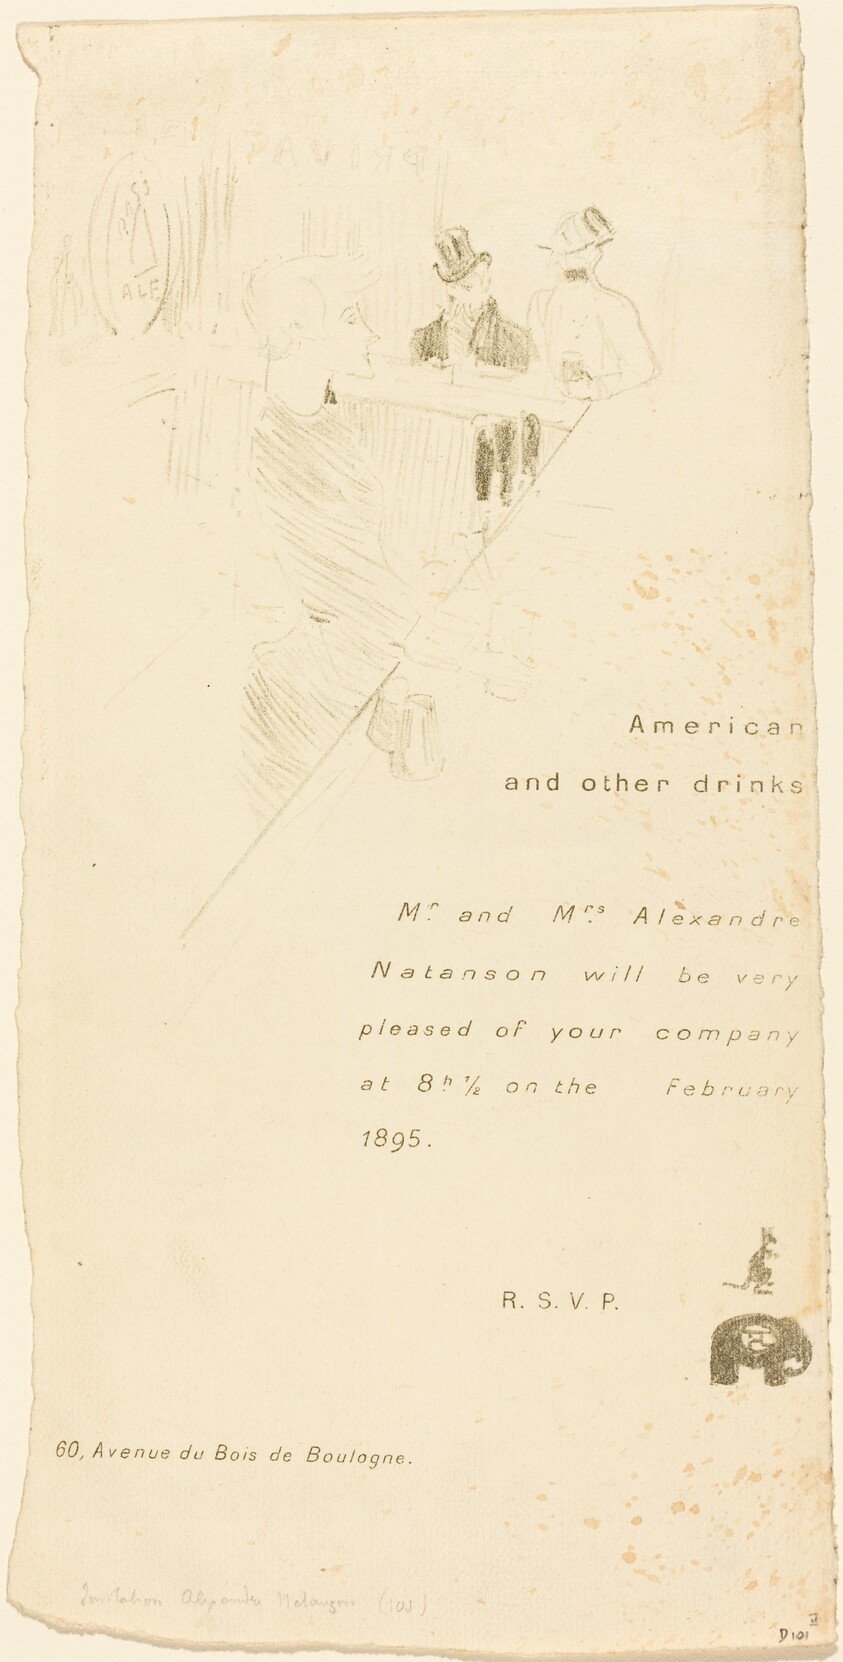 BASS
ALE
American
and other drinks
Mr. and Mrs. Alèxandre
Natanson will be very
pleased of your company
at 8h. ½ on the February
1895.
R. S. V. P.
60, Avenue du Bois de Boulogne.
Invitation Alexandre Natanson (101)
II
D101